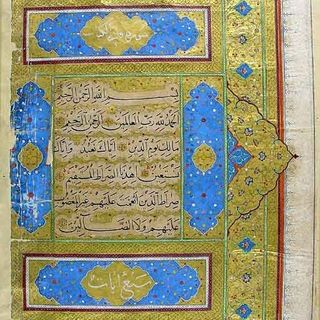 سورة فاتحة الكتاب
بسم الله الرحمن الرحيم
الحمد لله رب العالمين الرحمن الرحيم
مالك يوم الدين اياك نعبد واياك
نستعين اهدنا الصراط المستقيم
صراط الذين انعمت عليهم غير المغضوب
عليهم ولا الضالين
سبع ايات